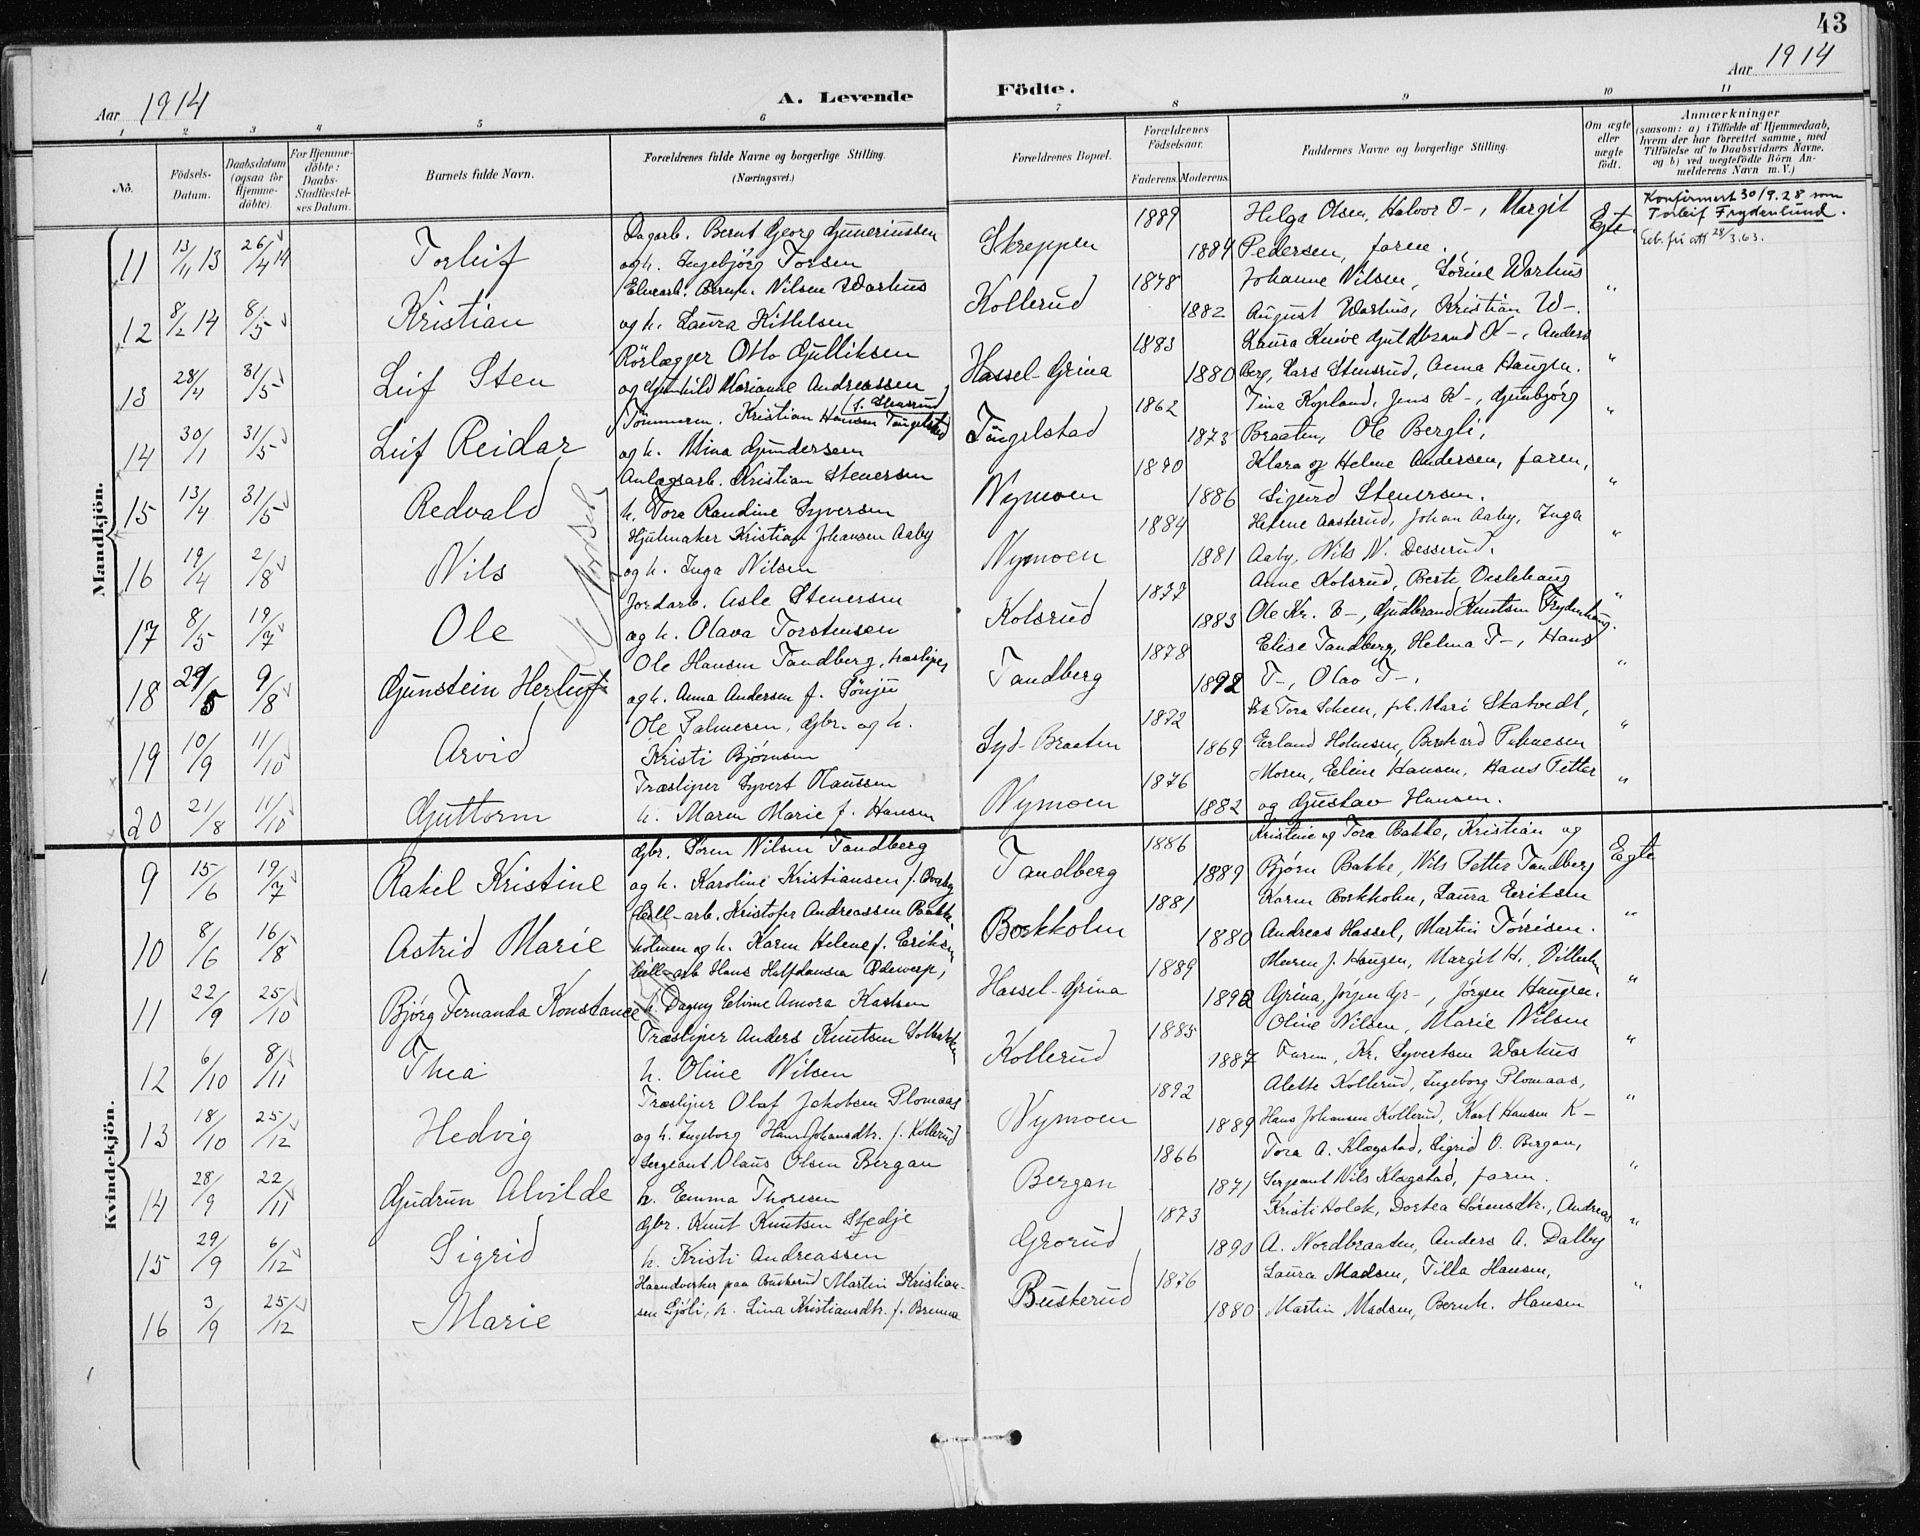 43
Aar 1914
A. Levende Födte.
Aar 1914
1 2 3 4 5 6 7 8 9 10 11
No.
Födsels-Datum.
Daabsdatum (ogsaa for Hjemme-döbte).
For Hjemme-döbte: Daabs-Stadfæstel-ses Datum.
Barnets fulde Navn.
Forældrenes fulde Navne og borgerlige Stilling. (Næringsvei.)
Forældrenes Bopæl.
Forældrenes Födselsaar.
Faderens. Moderens.
Faddernes Navne og borgerlige Stilling.
Om ægte eller uægte födt.
Anmærkninger
(saasom: a) i Tilfælde af Hjemmedaab, hvem der har forrettet samme, med Tilföielse af to Daabsvidners Navne. og b) ved uegtefödte Börn An-melderens Navn m.V.)
Mandkjön.
11 13/11 13 26/4 14 Torleif
Dagarb. Bernt Georg Guneriussen
og h. Ingebjörg Torsen
Skreppen 1889 1884
Helga Olsen, Halvor O-, Margit
Pedersen, faren.
Egte
Konfirmert 30/9.28 som
Torleif Frydenlund.
Geb. fr. att 28/3.63.
12 8/2 14 8/5 Kristian
Elvearb. Bernh. Nilsen Warhus
og h. Laura Kittelsen
Kollerud 1878 1882
Johanne Nilsen, Sörine Warhus
August Warhus, Kristian W-.
"
13 28/4 31/5 Leif Sten
Rörlægger Otto Gulliksen
og Gunhild Marianne Andreassen
f. Stensrud
Hassel-Grina 1883 1880
Laura Knive Guldbrand K-, Anders
Berg, Lars Stensrud, Anna Haugen.
"
14 30/1 31/5 Leif Reidar
Tömmerm. Kristian Hansen Tingelstad
og h. Mina Gundersen
Tingelstad 1862 1873
Tina Kopland, Jens K-, Gunbjörg
Braaten, Ole Bergli,
"
15 13/4 31/5 Redvald
Anlægsarb. Kristian Stenersen
h. Tora Randine Syversen
Nymoen 1890 1886
Klara og Helene Andersen, faren,
Sigurd Stenersen.
"
16 19/4 2/8 Nils
Hjulmaker Kristian Johansen Aaby
og h. Inga Nilsen
Nymoen 1884 1881
Helene Aasterud, Johan Aaby, Inga
Aaby, Nils N. Desserud.
"
17 8/5 19/7 Ole
Jordarb. Asle Stenersen
og h. Olava Torstensen
Kolsrud 1877 1883
Anne Kolsrud, Berte Deslehaug
Ole Kr. D-, Gudbrand Knutsen Frydenhaug.
"
18 29/5 9/8 Gunstein Herluf
Ole Hansen Tandberg, træsliper
og h. Anna Andersen f. Sönju
Tandberg 1878 1892
Elise Tandberg, Helma T-, Hans
T-, Olav T-.
"
19 10/9 11/10 Arvid
Ole Palmesen, Gbr. og h.
Kristi Björnsen
Syd-Braaten 1872 1869
Tora Scheen, Mari Skatvedt,
Erland Holmesen, Bernhard Palmesen
"
20 21/8 11/10 Guttorm
Træsliper Syvert Klaussen
h. Maren Marie f. Hansen
Nymoen 1876 1882
Moren, Eline Hansen, Hans Petter
og Gustav Hansen.
"
Kvindekjön.
9 15/6 19/7 Rakel Kristine
Gbr. Sören Nilsen Tandberg
og h. Karoline Kristiansen f.
Tandberg 1886 1889
Kristine og Tora Bakke, Kristian og
Björn Bakke, Nils Petter Tandberg
Egte
10 8/6 16/8 Astrid Marie
Cell-arb. Kristofer Andreassen
holmen og h. Karen Helene f. Eriksen
Borkholm 1881 1880
Karen Borkholm, Laura Eriksen
Andreas Hassel, Martin Törrisen.
"
11 22/9 25/10 Björg Fernanda Konstance
Cell-arb Hans Halfdansen Ödewerp,
h. Dagny Elvine Amora Karlsen
Hassel-Grina 1889 1892
Maren J. Haugen, Margit H., Vilhelm
Grina, Jörgen Gr-, Jörgen Haugen.
"
12 6/10 8/11 Thea
Træsliper Anders Knutsen Solbakken
h. Oline Nilsen
Kollerud 1885 1887
Oline Nilsen, Marie Nilsen
Faren, Kr. Syvertsen Warhus
"
13 18/10 25/12 Hedvig
Træsliper Olaf Jakobsen Plomaas
og h. Ingeborg Hans Johansdtr. f. Kollerud
Nymoen 1892 1889
Alette Kollerud, Ingeborg Plomaas,
Hans Johansen Kollerud, Karl Hansen K-
"
14 28/9 22/11 Gudrun Alvilde
Sergeant Olaus Olsen Bergan
h. Emma Thoresen
Bergan 1866 1871
Tora A. Klægstad, Sigrid O. Bergan,
Serjeant Nils Klægstad, faren.
"
15 29/9 6/12 Sigrid
Gbr. Knut Knutsen Stedje
h. Kristi Andreassen
Grorud 1873 1890
Kristi Holak, Dortea Sörensdtr., Andreas
A. Nordbraaten, Anders A. Dalby
"
16 3/9 25/12 Marie
Haandverker paa Buskerud Martin Kristian-
sen Sjöli, h. Lina Kristiansdtr. f. Bremna
Buskerud 1876 1880
Laura Madsen, Tilla Hansen,
Martin Madsen, Bernh. Hansen
"